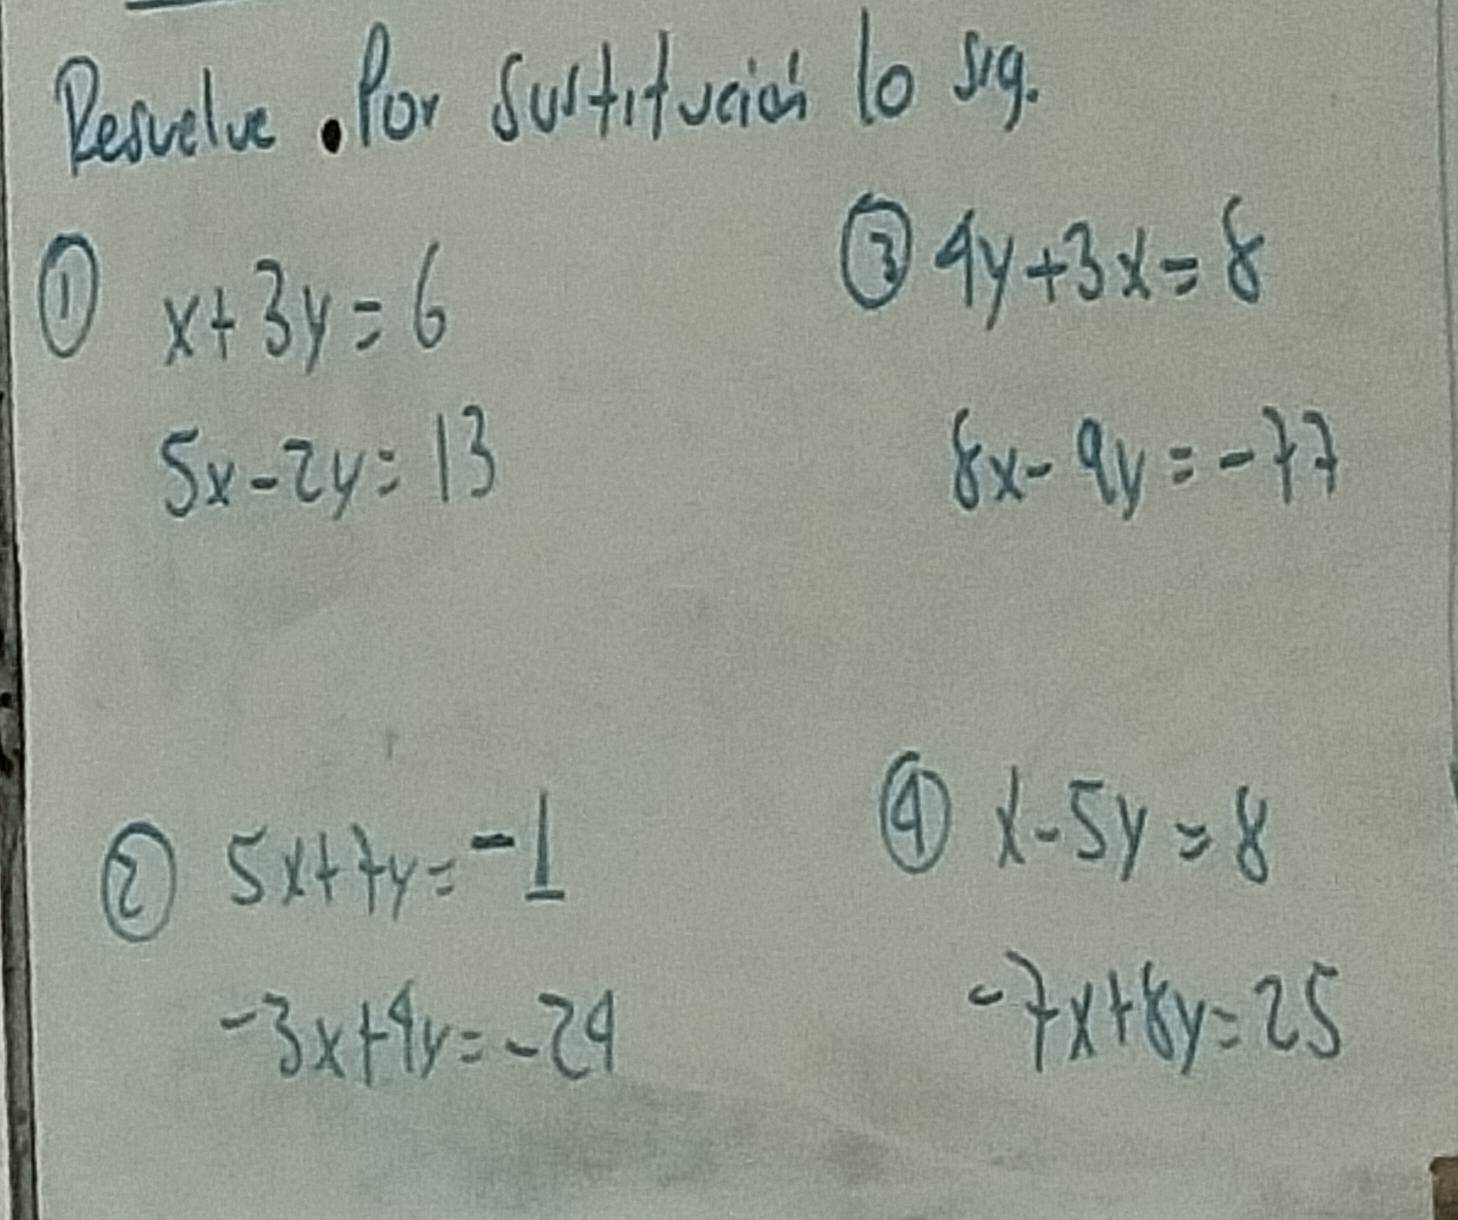 Resuelve . Por Sustitución lo sig.
① x+3y=6
5x-2y=13
② 5x+7y=-1
-3x+4y=-24
③ 4y+3x=8
8x-9y=-77
④ x-5y=8
-7x+8y=25